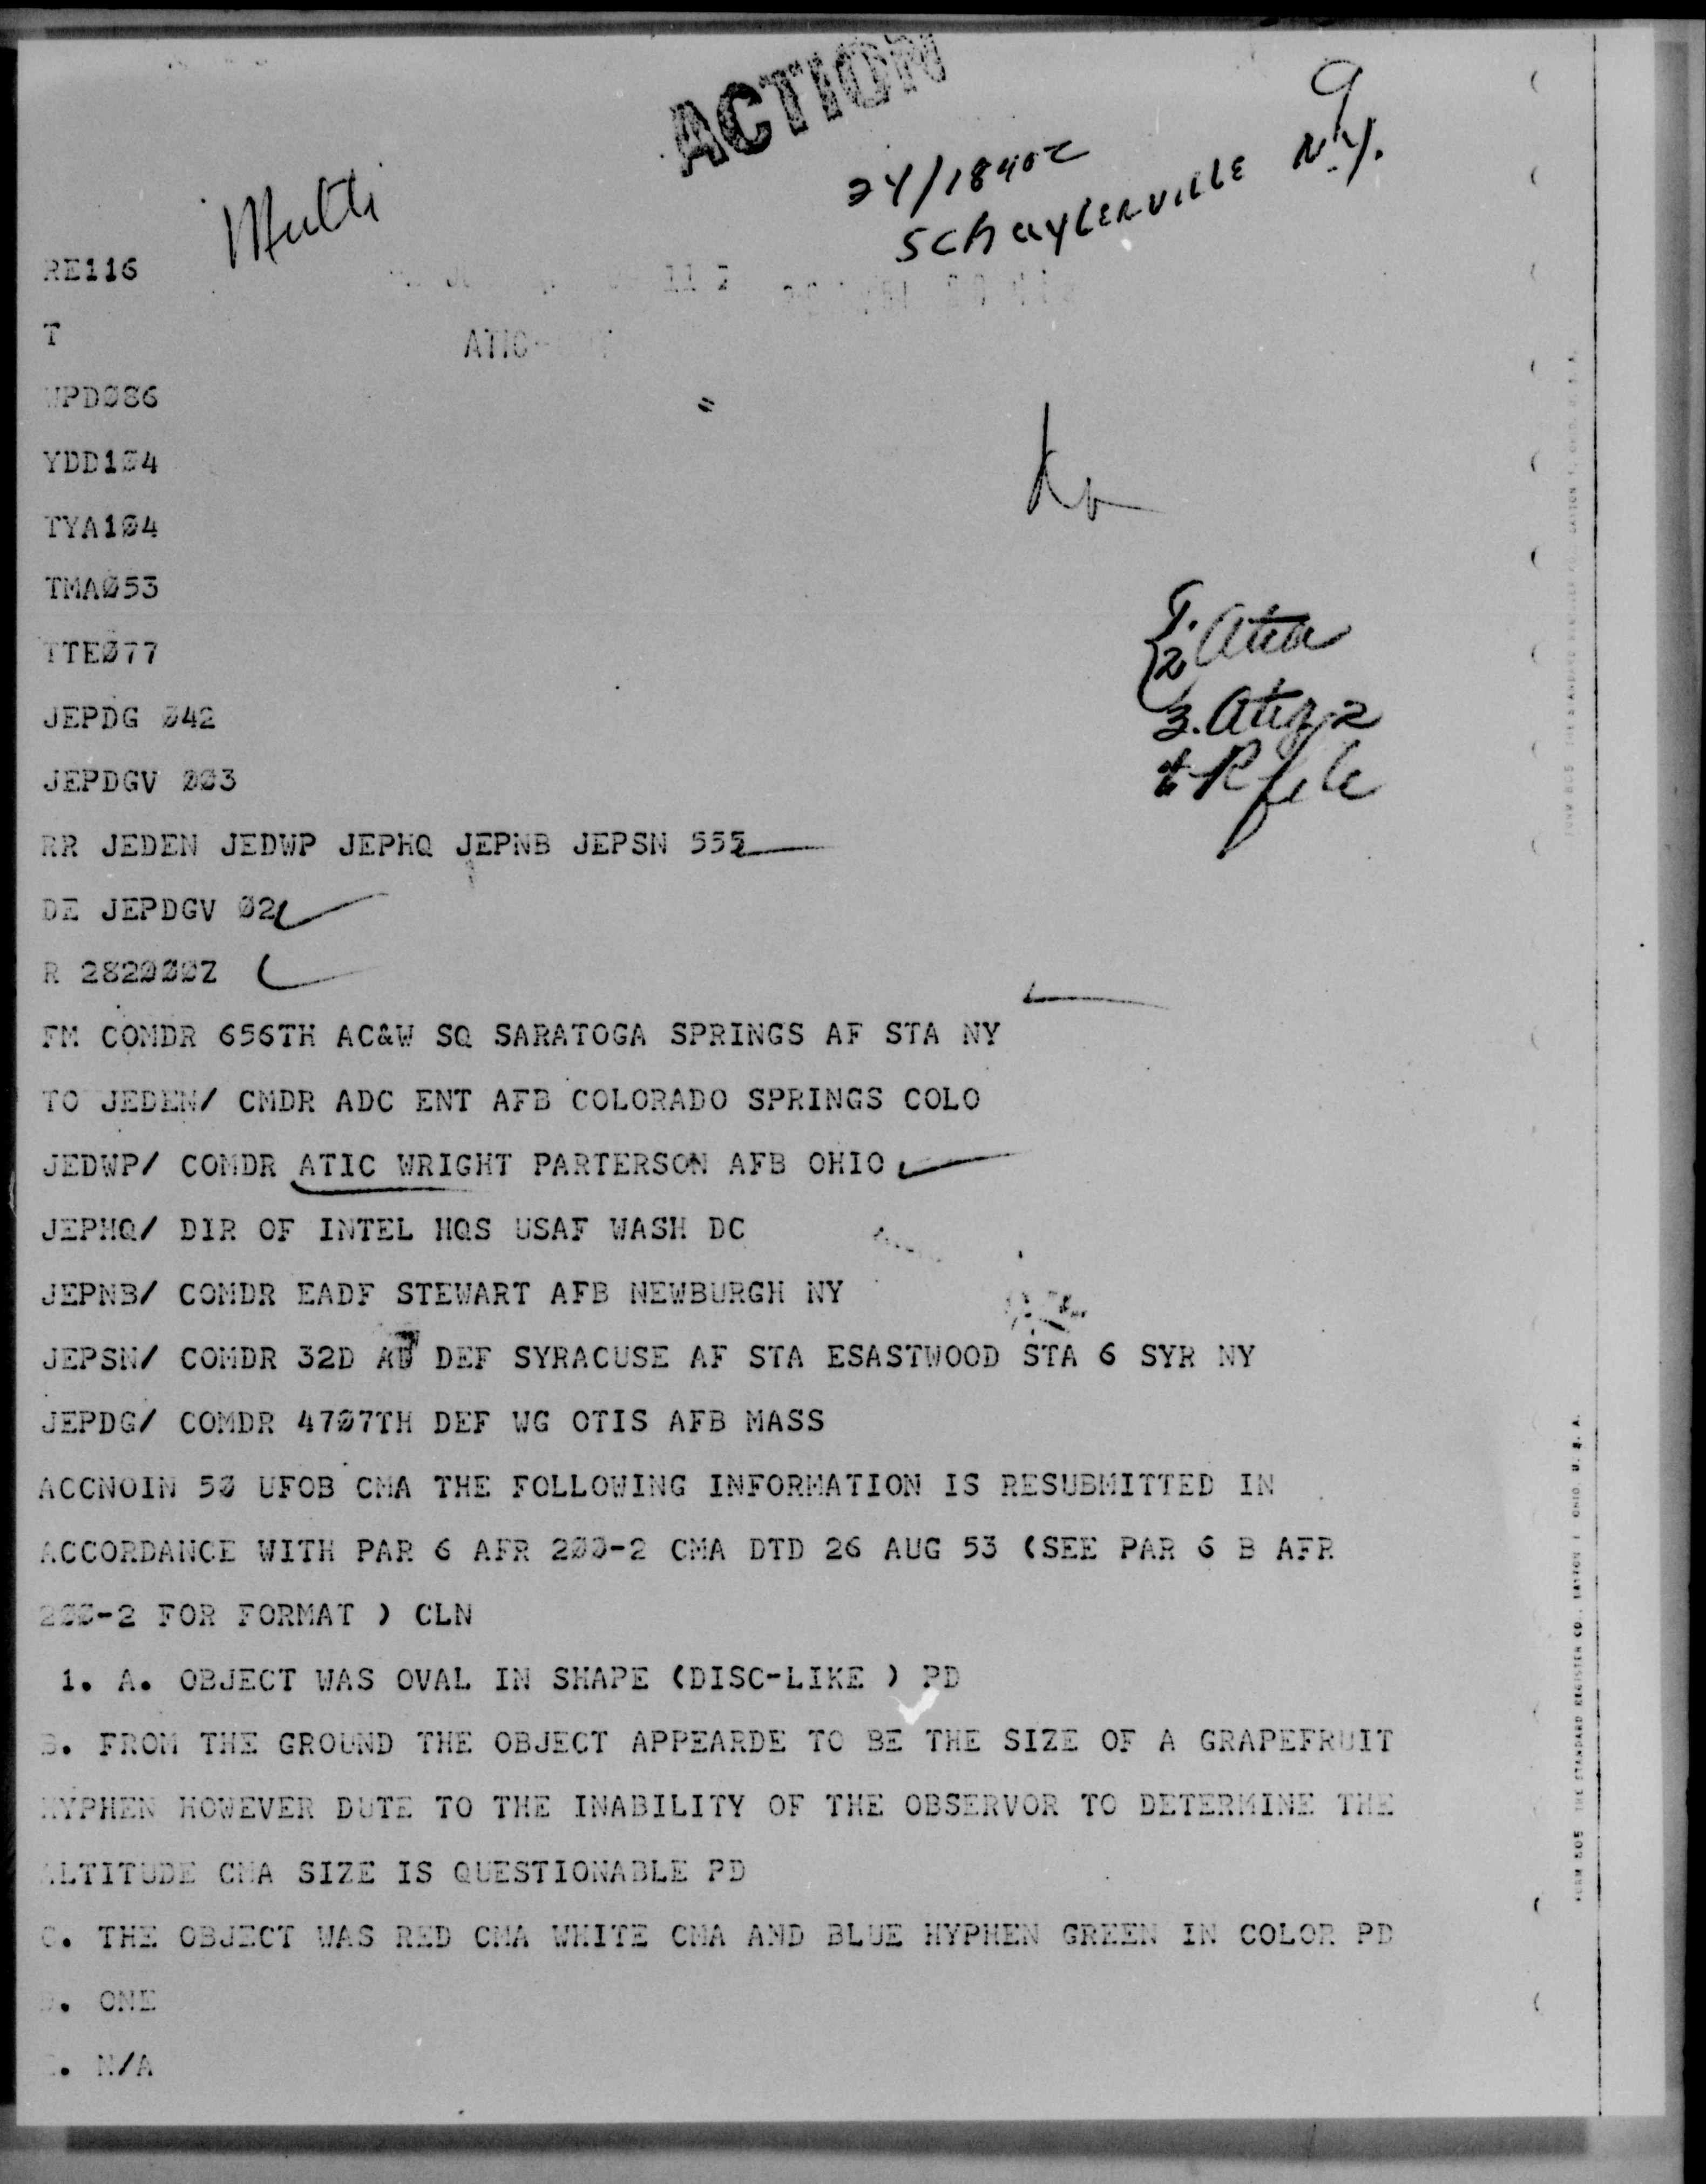 ACTION
24/1840Z
SCHUYLERVILLE N.Y.
RE116
T
ATIC
WPDØ86
YDD1Ø4
TYA1Ø4
TMAØ53
TTEØ77
JEPDG Ø42
JEPDGV ØØ3
RR JEDEN JEDWP JEPHQ JEPNB JEPSN 555
DE JEPDGV Ø2
R 282ØØØZ
FM COMDR 656TH AC&W SQ SARATOGA SPRINGS AF STA NY
TO JEDEN/ CMDR ADC ENT AFB COLORADO SPRINGS COLO
JEDWP/ COMDR ATIC WRIGHT PARTERSON AFB OHIO
JEPHQ/ DIR OF INTEL HQS USAF WASH DC
JEPNB/ COMDR EADF STEWART AFB NEWBURGH NY
JEPSN/ COMDR 32D DEF SYRACUSE AF STA ESASTWOOD STA 6 SYR NY
JEPDG/ COMDR 47Ø7TH DEF WG OTIS AFB MASS
ACCNOIN 5Ø UFOB CMA THE FOLLOWING INFORMATION IS RESUBMITTED IN
ACCORDANCE WITH PAR 6 AFR 2ØØ-2 CMA DTD 26 AUG 53 (SEE PAR 6 B AFR
2ØØ-2 FOR FORMAT ) CLN
1. A. OBJECT WAS OVAL IN SHAPE (DISC-LIKE ) PD
B. FROM THE GROUND THE OBJECT APPEARDE TO BE THE SIZE OF A GRAPEFRUIT
HYPHEN HOWEVER DUTE TO THE INABILITY OF THE OBSERVOR TO DETERMINE THE
ALTITUDE CMA SIZE IS QUESTIONABLE PD
C. THE OBJECT WAS RED CMA WHITE CMA AND BLUE HYPHEN GREEN IN COLOR PD
D. ONE
E. N/A